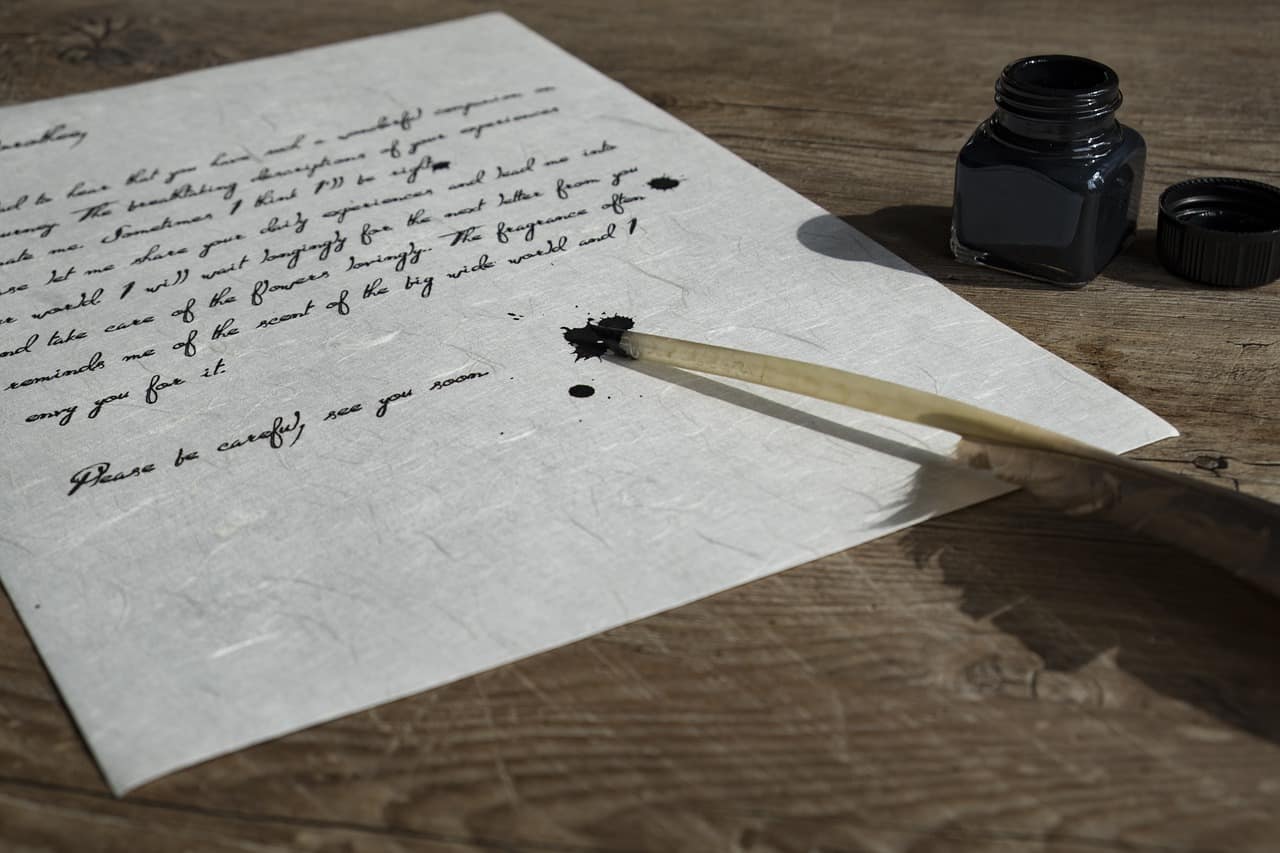 to hear that you have such a wonderful companion on
The breathtaking descriptions of your experiences
me. Sometimes I think I'll be right
let me share your daily experiences and lead me into
world. I will wait longingly for the next letter from you
and take care of the flowers lovingly. The fragrance often
reminds me of the scent of the big wide world and I
envy you for it.
Please be careful, see you soon